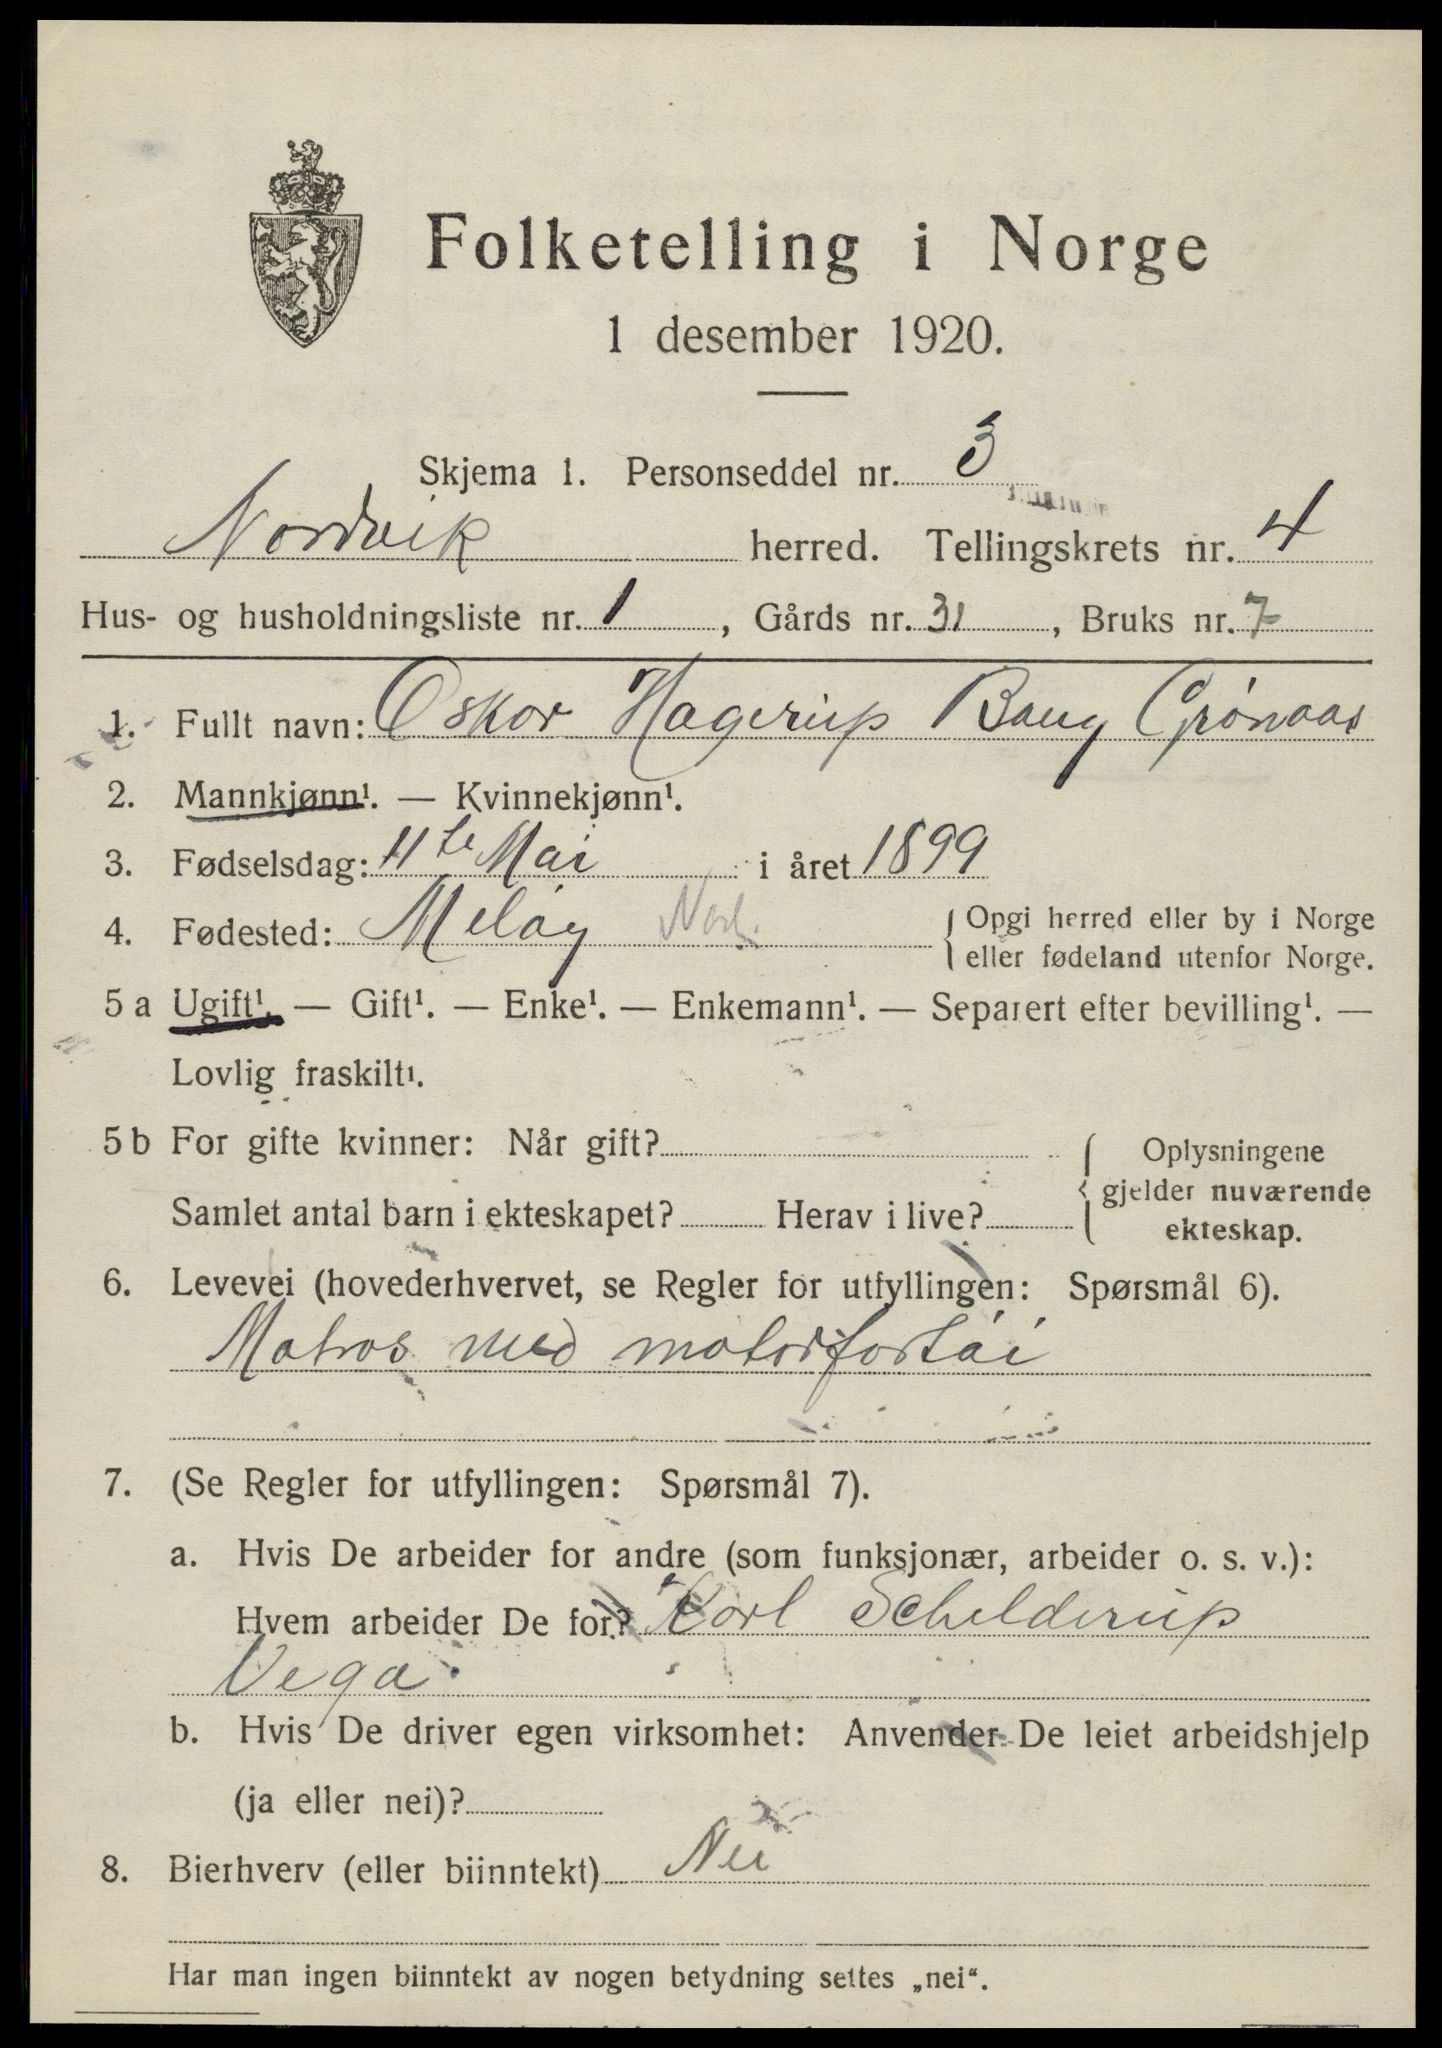 Folketelling i Norge
1 desember 1920.
Skjema 1. Personseddel nr. 3
Nordvik herred. Tellingskrets nr. 4
Hus- og husholdningsliste nr. 1, Gårds nr. 31, Bruks nr. 7
1. Fullt navn: Oskar Hagerup Baug Grønaas
2. Mannkjønn¹. — Kvinnekjønn¹.
3. Fødselsdag: 11te Mai i året 1899
4. Fødested: Meløy Nordl. { Opgi herred eller by i Norge
eller fødeland utenfor Norge.
5 a Ugift¹. — Gift¹. — Enke¹. — Enkemann¹. — Separert efter bevilling¹. —
Lovlig fraskilt¹.
5 b For gifte kvinner: Når gift? { Oplysningene
gjelder nuværende
Samlet antal barn i ekteskapet? Herav i live?
ekteskap.
6. Levevei (hovederhvervet, se Regler for utfyllingen: Spørsmål 6).
Matros med motorfartøi
7. (Se Regler for utfyllingen: Spørsmål 7).
a. Hvis De arbeider for andre (som funksjonær, arbeider o. s. v.):
Hvem arbeider De for? Karl Schelderup
Vega.
b. Hvis De driver egen virksomhet: Anvender De leiet arbeidshjelp
(ja eller nei)?
8. Bierhverv (eller biinntekt) Nei
Har man ingen biinntekt av nogen betydning settes „nei“.